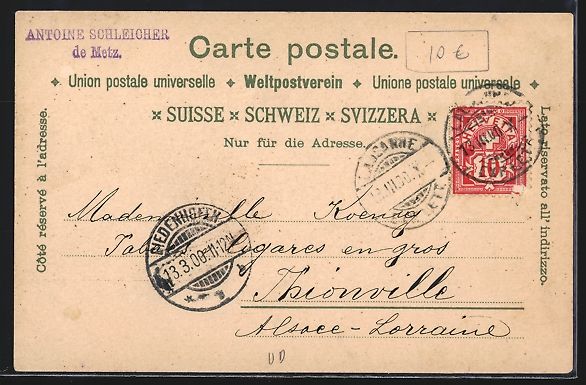 ANTOINE SCHLEICHER
de Metz.
10 €
Carte postale.
Union postale universelle Weltpostverein Unione postale universale
SUISSE SCHWEIZ SVIZZERA
Nur für die Adresse.
Côté réservé à l'adresse.
Lato riservato all' indirizzo.
HELVETIA
10
LAUSANNE
DIEDENHOFEN
13.3.00 11-12
Mademoiselle Koenig
Tabac Cigares en gros
Thionville
Alsace-Lorraine
UD